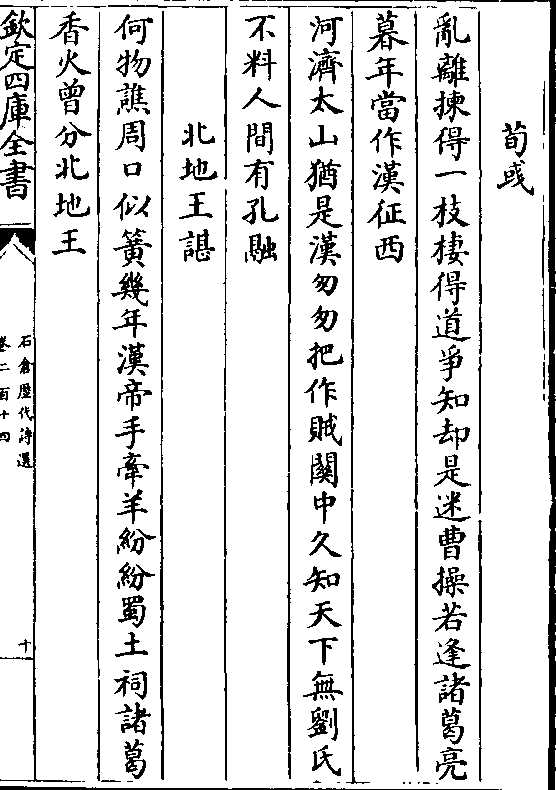 荀彧
亂離揀得一枝棲得道爭知却是迷曹操若逢諸葛亮
暮年當作漢征西
河濟太山猶是漢匆匆把作賊關中久知天下無劉氏
不料人間有孔融
北地王諶
何物譙周口似簧幾年漢帝手牽羊紛紛蜀土祠諸葛
香火曾分北地王
欽定四庫全書
石倉歷代詩選
卷二百十四
十